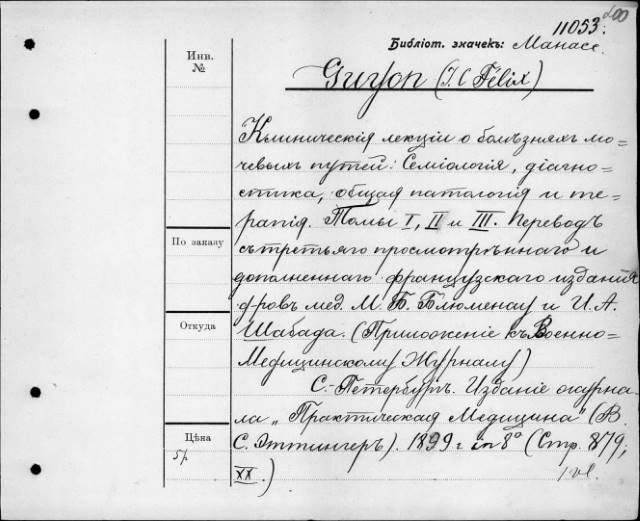 200
11053.
Библіот. значекъ: Манасе.
Инв.
№
Guyon (J. C Félix)
Клиническія лекціи о болѣзняхъ мо=
чевыхъ путей: Семіологія, діагно=
стика, общая патологія и те=
рапія. Томы I, II и III. Переводъ
По заказу
съ третьяго просмотрѣннаго и
дополненнаго французскаго изданія
д-ровъ мед. М. Б. Блюменау и И. А.
Откуда
Шабада. (Приложеніе къ Военно=
Медицинскому Журналу)
С.-Петербургъ. Изданіе журна-
ла „Практическая Медицина" (В.
Цѣна
С. Эттингеръ). 1899 г in 8° (Стр. 879;
5 р
XX.)
1 vol.